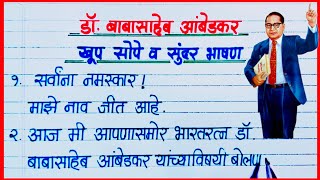 डॉ. बाबासाहेब आंबेडकर
खूप सोपे व सुंदर भाषण
१. सर्वांना नमस्कार!
माझे नाव जीत आहे.
२. आज मी आपणासमोर भारतरत्न डॉ.
बाबासाहेब आंबेडकर यांच्याविषयी